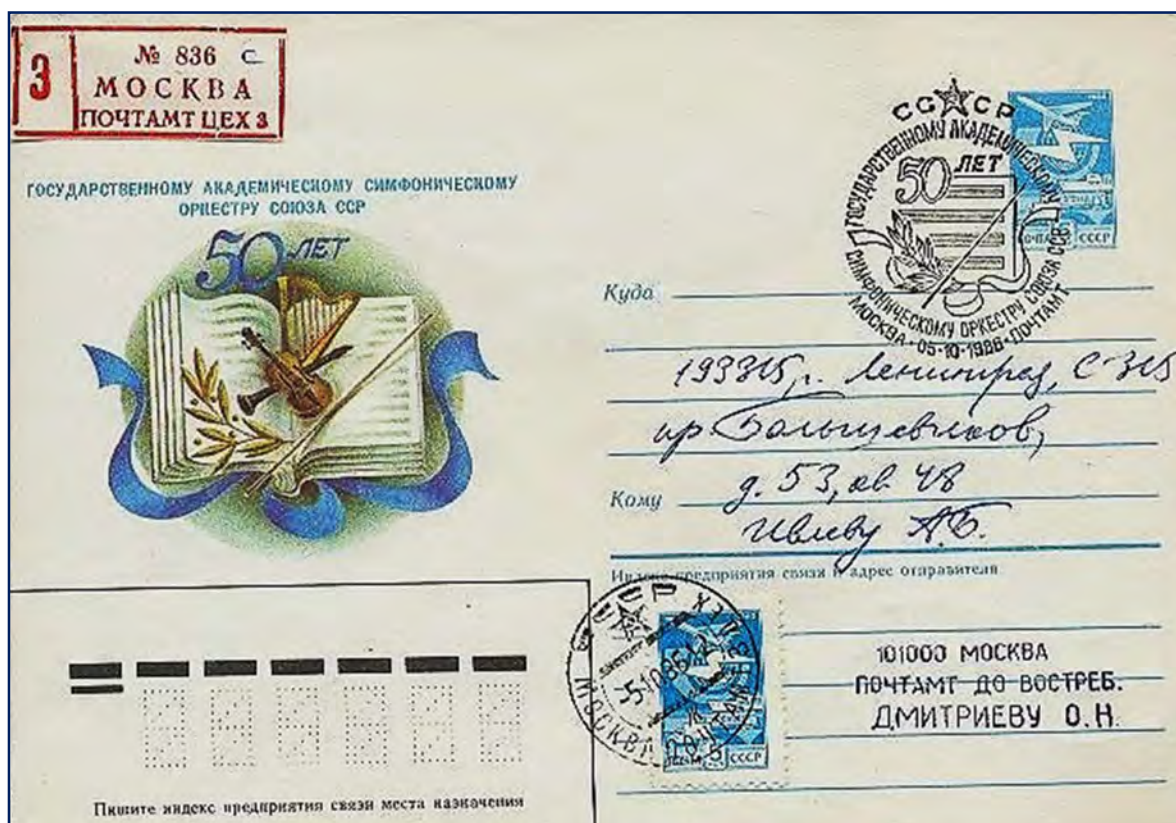 З
№ 836 с
МОСКВА
ПОЧТАМТ ЦЕХ 3
ГОСУДАРСТВЕННОМУ АКАДЕМИЧЕСКОМУ СИМФОНИЧЕСКОМУ
ОРКЕСТРУ СОЮЗА ССР
50 ЛЕТ
СССР
ГОСУДАРСТВЕННОМУ АКАДЕМИЧЕСКОМУ
СИМФОНИЧЕСКОМУ ОРКЕСТРУ СОЮЗА ССР
50 ЛЕТ
МОСКВА · 05-10-1986 · ПОЧТАМТ
ПОЧТА СССР
Куда
193315, г. Ленинград, С-315
пр Большевиков,
Кому
д. 53, кв 48
Ивлеву А.Б.
Индекс предприятия связи и адрес отправителя
СССР
-5-10 86-12
МОСКВА ПОЧТАМТ
5 СССР
101000 МОСКВА
ПОЧТАМТ ДО ВОСТРЕБ.
ДМИТРИЕВУ О.Н.
Пишите индекс предприятия связи места назначения